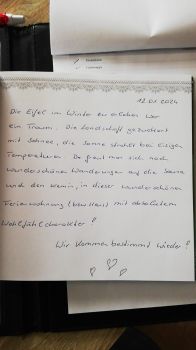 12.01.2024
Die Eifel im Winter zu erleben war
ein Traum. Die Landschaft gezuckert
mit Schnee, die Sonne strahlte bei eisigen
Temperaturen. Da freut man sich nach
wunderschönen Wanderungen auf die Sauna
und den Kamin, in dieser wunderschönen
Ferienwohnung mit absolutem
Wohlfühlcharakter!
Wir kommen bestimmt wieder!